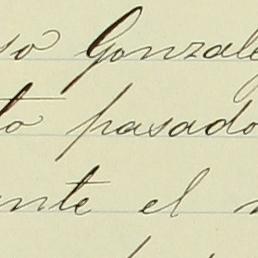 so Gonzale
to pasado
ante el